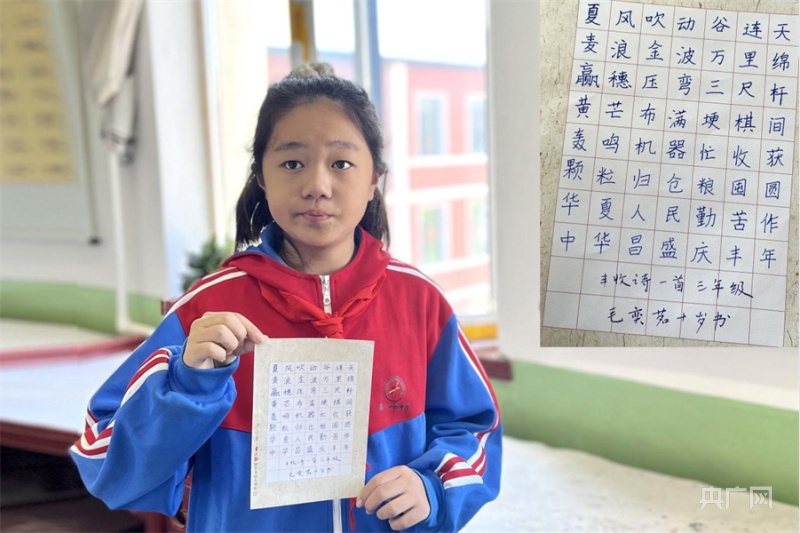 夏风吹动谷连天
麦浪金波万里绵
赢穗压弯三尺杆
黄芒布满埂棋间
轰鸣机器忙收获
颗粒归仓粮囤圆
华夏人民勤苦作
中华昌盛庆丰年
丰收诗一首 三年级
毛奕茗十岁书
央广网